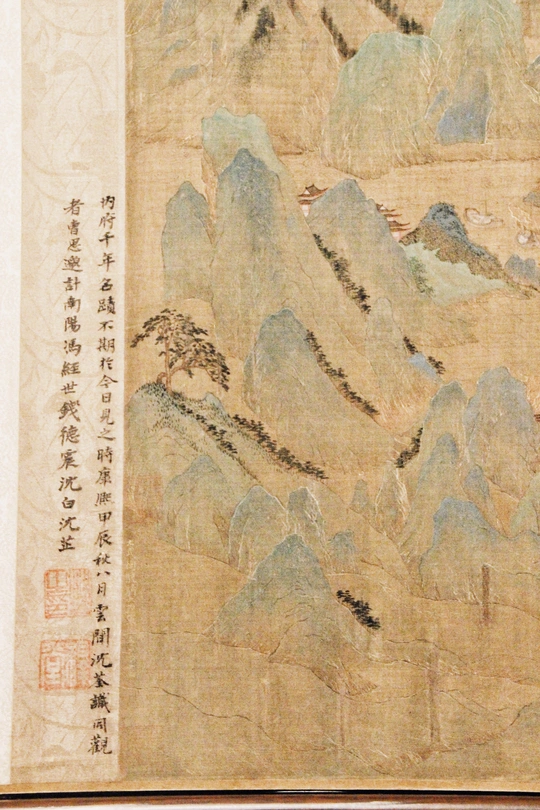 内府千年名蹟不期於今日見之時康熙甲辰秋八月雲間沈荃識同觀
者曹思邈計南陽馮經世錢德震沈白沈